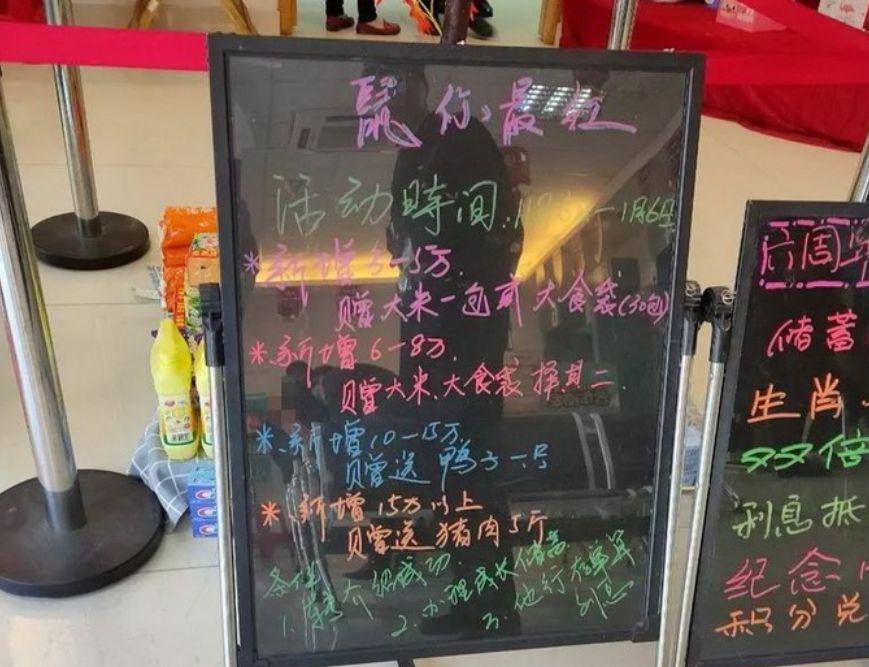 鼠你最红
活动時间:1月6日
*新增3-5万.
赠大米一包或大食袋(30包)
*新增6-8万.
赠大米.大食袋择其二.
*新增10-15万
赠送鸭子一号
*新增15万以上
赠送猪肉5斤
条件
1.介绍成功
2.办理成长储蓄
3.他行
利息
储蓄
生肖
双倍
利息抵
纪念
积分兑